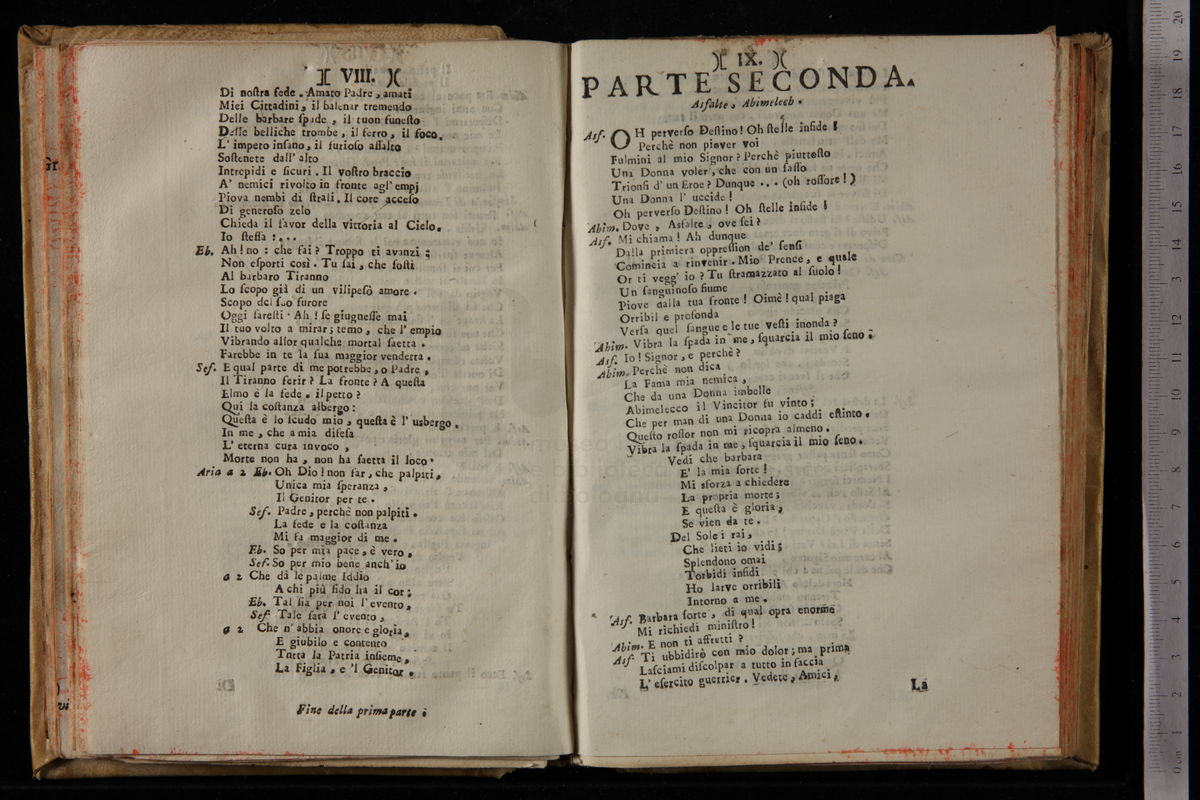 )( VIII. )(
Di noſtra fede. Amato Padre, amati
Miei Cittadini, il balenar tremendo
Delle barbare ſpade, il tuon funeſto
Delle belliche trombe, il ferro, il foco,
L' impeto inſano, il furioſo aſſalto
Soſtenete dall' alto
Intrepidi e ſicuri. Il voſtro braccio
A' nemici rivolto in fronte agl' empj
Piova nembi di ſtrali. Il core acceſo
Di generoſo zelo
Chieda il favor della vittoria al Cielo.
Io ſteſſa :...
Eb. Ah! no : che fai? Troppo ti avanzi ;
Non eſporti così. Tu ſai, che foſti
Al barbaro Tiranno
Lo ſcopo già di un vilipeſo amore.
Scopo del ſuo furore
Oggi fareſti. Ah! ſe giugneſſe mai
Il tuo volto a mirar; temo, che l' empio
Vibrando allor qualche mortal ſaetta.
Farebbe in te la ſua maggior vendetta.
Sef. E qual parte di me potrebbe, o Padre,
Il Tiranno ferir? La fronte? A queſta
Elmo è la fede. il petto?
Qui la coſtanza albergo:
Queſta è lo ſcudo mio, queſta è l' usbergo.
In me, che a mia difeſa
L' eterna cura invoco,
Morte non ha, non ha ſaetta il loco.
Aria a 2 Eb. Oh Dio! non far, che palpiti,
Unica mia ſperanza,
Il Genitor per te.
Sef. Padre, perchè non palpiti.
La fede e la coſtanza
Mi fa maggior di me.
Eb. So per mia pace, è vero,
Sef. So per mio bene anch' io
a 2 Che dà le palme Iddio
A chi più fido ha il cor;
Eb. Tal ſia per noi l' evento,
Sef. Tale ſarà l' evento,
a 2 Che n' abbia onore e gloria,
E giubilo e contento
Tutta la Patria inſieme,
La Figlia, e 'l Genitor.
Fine della prima parte
)( IX. )(
PARTE SECONDA.
Asfalte, Abimelech.
Asf. OH perverſo Deſtino! Oh ſtelle infide!
Perchè non piover voi
Fulmini al mio Signor? Perchè piuttoſto
Una Donna voler, che con un ſaſſo
Trionfi d' un Eroe? Dunque ... (oh roſſore!)
Una Donna l' uccide!
Oh perverſo Deſtino! Oh ſtelle infide!
Abim. Dove, Asfalte, ove ſei?
Asf. Mi chiama! Ah dunque
Dalla primiera oppreſſion de' ſenſi
Comincia a rinvenir. Mio Prence, e quale
Or ti vegg' io? Tu ſtramazzato al ſuolo!
Un ſanguinoſo fiume
Piove dalla tua fronte! Oimè! qual piaga
Orribil e profonda
Verſa quel ſangue e le tue veſti inonda?
Abim. Vibra la ſpada in me, ſquarcia il mio ſeno.
Asf. Io! Signor, e perchè?
Abim. Perchè non dica
La Fama mia nemica,
Che da una Donna imbelle
Abimelecco il Vincitor fu vinto;
Che per man di una Donna io caddi eſtinto.
Queſto roſſor non mi ricopra almeno.
Vibra la ſpada in me, ſquarcia il mio ſeno.
Vedi che barbara
E' la mia ſorte!
Mi sforza a chiedere
La propria morte;
E queſta è gloria,
Se vien da te.
Del Sole i rai,
Che lieti io vidi;
Splendono omai
Torbidi infidi
Ho larve orribili
Intorno a me.
Asf. Barbara ſorte, di qual opra enorme
Mi richiedi miniſtro!
Abim. E non ti affretti?
Asf. Ti ubbidirò con mio dolor; ma prima
Laſciami diſcolpar a tutto in faccia
L' eſercito guerrier. Vedete, Amici,
La